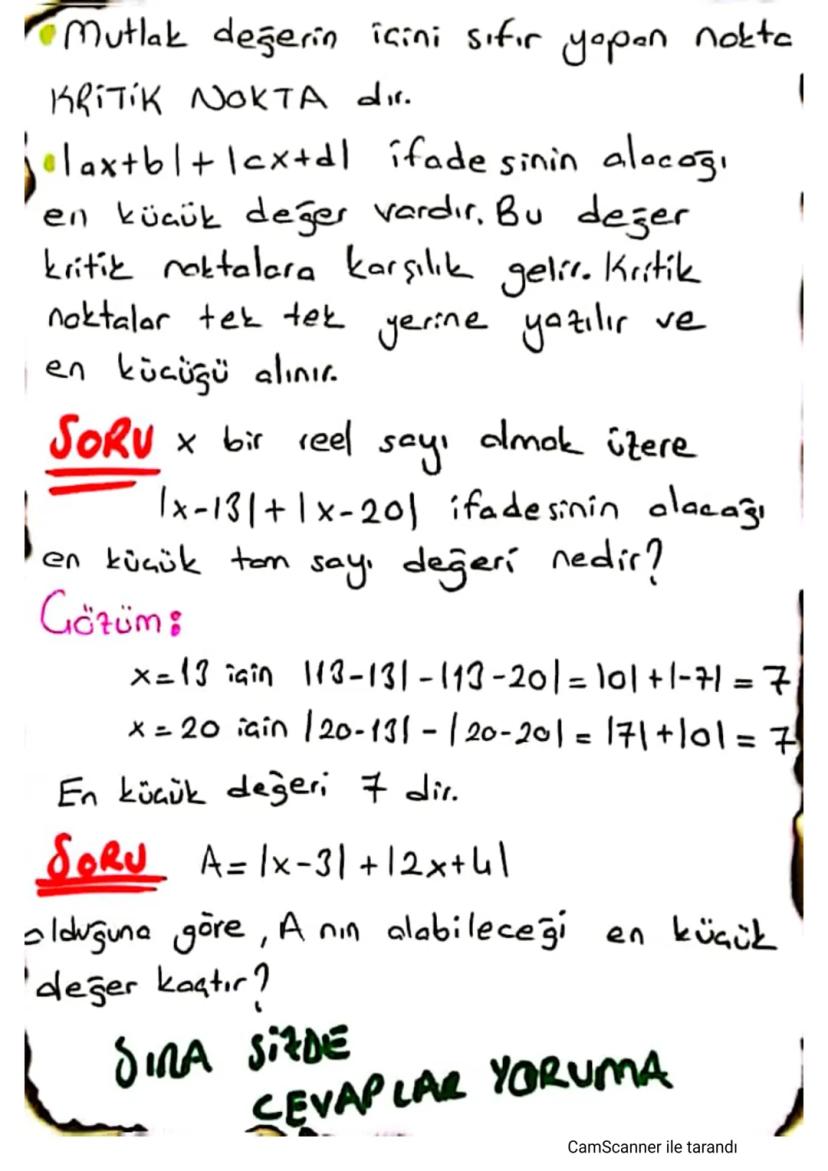 • Mutlak değerin içini sıfır yapan nokta
KRİTİK NOKTA dır.
• |ax+b|+|cx+d| ifadesinin alacağı
en küçük değer vardır. Bu değer
kritik noktalara karşılık gelir. Kritik
noktalar tek tek yerine yazılır ve
en küçüğü alınır.
SORU x bir reel sayı olmak üzere
|x-13|+|x-20| ifadesinin alacağı
en küçük tam sayı değeri nedir?
Çözüm:
x=13 için |13-13|-|13-20|=|0|+|-7|=7
x=20 için |20-13|-|20-20|=|7|+|0|=7
En küçük değeri 7 dir.
SORU A=|x-3|+|2x+4|
olduğuna göre, A nın alabileceği en küçük
değer kaçtır?
SIRA SİZDE
CEVAPLAR YORUMA
CamScanner ile tarandı